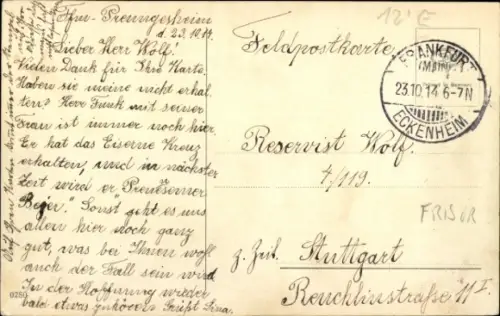 Ffm-Preungesheim
d. 23.10.14
Lieber Herr Wolf!
Vielen Dank für Ihre Karte.
Haben sie meine nicht erhal-
ten? Herr Funk mit seiner
Frau ist immer noch hier,
Er hat das Eiserne Kreuz
erhalten, und in nächster
Zeit wird er
Sonst geht es uns
allen hier noch ganz
gut, was bei Ihnen wohl
auch der Fall sein wird
In der Hoffnung wieder
bald etwas zu hören Grüßt Lina.
0280
12 E
Feldpostkarte
FRANKFURT
(MAIN)
23.10.14 6-7N
ECKENHEIM
Reservist Wolf.
4/119.
FRISUR
z. Zeit. Stuttgart
Reuchlinstraße 11 I.